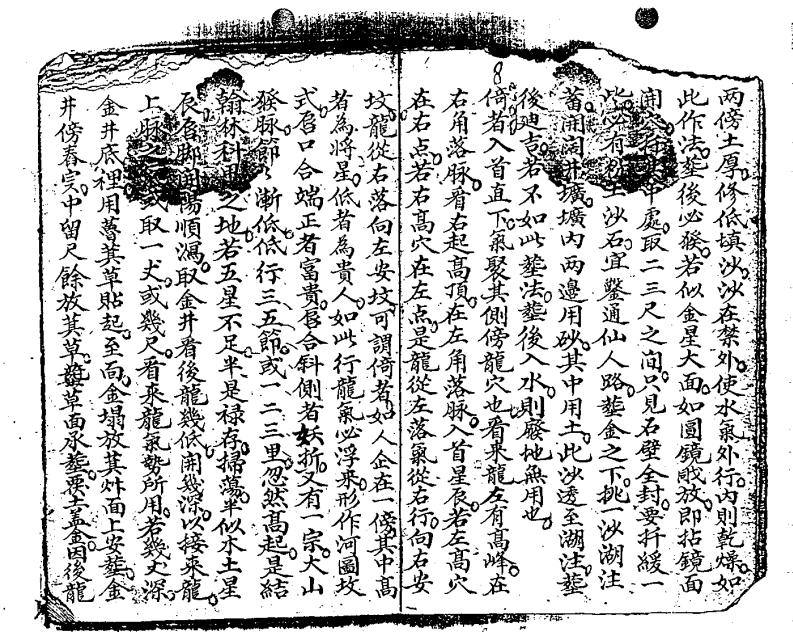 兩傍土厚修低填沙沙在禁外使水氣外行內則乾燥如
此作法塟後必發若似金星大面如圓鏡戝放即拈鏡面
開 中處取二三尺之間只見石壁全封要扦緩一
 必有 沙石宜鑿通仙人路塟金之下挑一沙湖注
蓄開闊井壙壙內兩邊用砂其中用土此沙透至湖注塟
後迪吉若不如此塟法塟後入水則廢地無用也
8
倚者入首直下氣聚其側傍龍穴也看來龍左有高峰在
右角落脉看右起高頂在左角落脉入首星辰若左高穴
在右点若右高穴在左点是龍從左落氣從右行向右安
坟龍從右落向左安坟可謂倚者如人企在一傍其中高
者為將星低者為貴人如此行龍氣必浮來形作河圖坟
式唇口合端正者富貴唇合斜側者妖折又有一宗大山
發脉節〻漸低低行三五節或一二三里忽然高起是結
翰林科甲之地若五星不足半是祿存掃蕩半似水土星
辰名脚開陽順瀉取金井看後龍幾低開幾深以接來龍
上脉之 或取一丈或幾尺看來龍氣勢所用若幾丈深
金井底裡用 萁草貼起至面金塌放萁艸面上安塟金
井傍舂实中留尺餘放萁草 草面承塟要土盖金因後龍